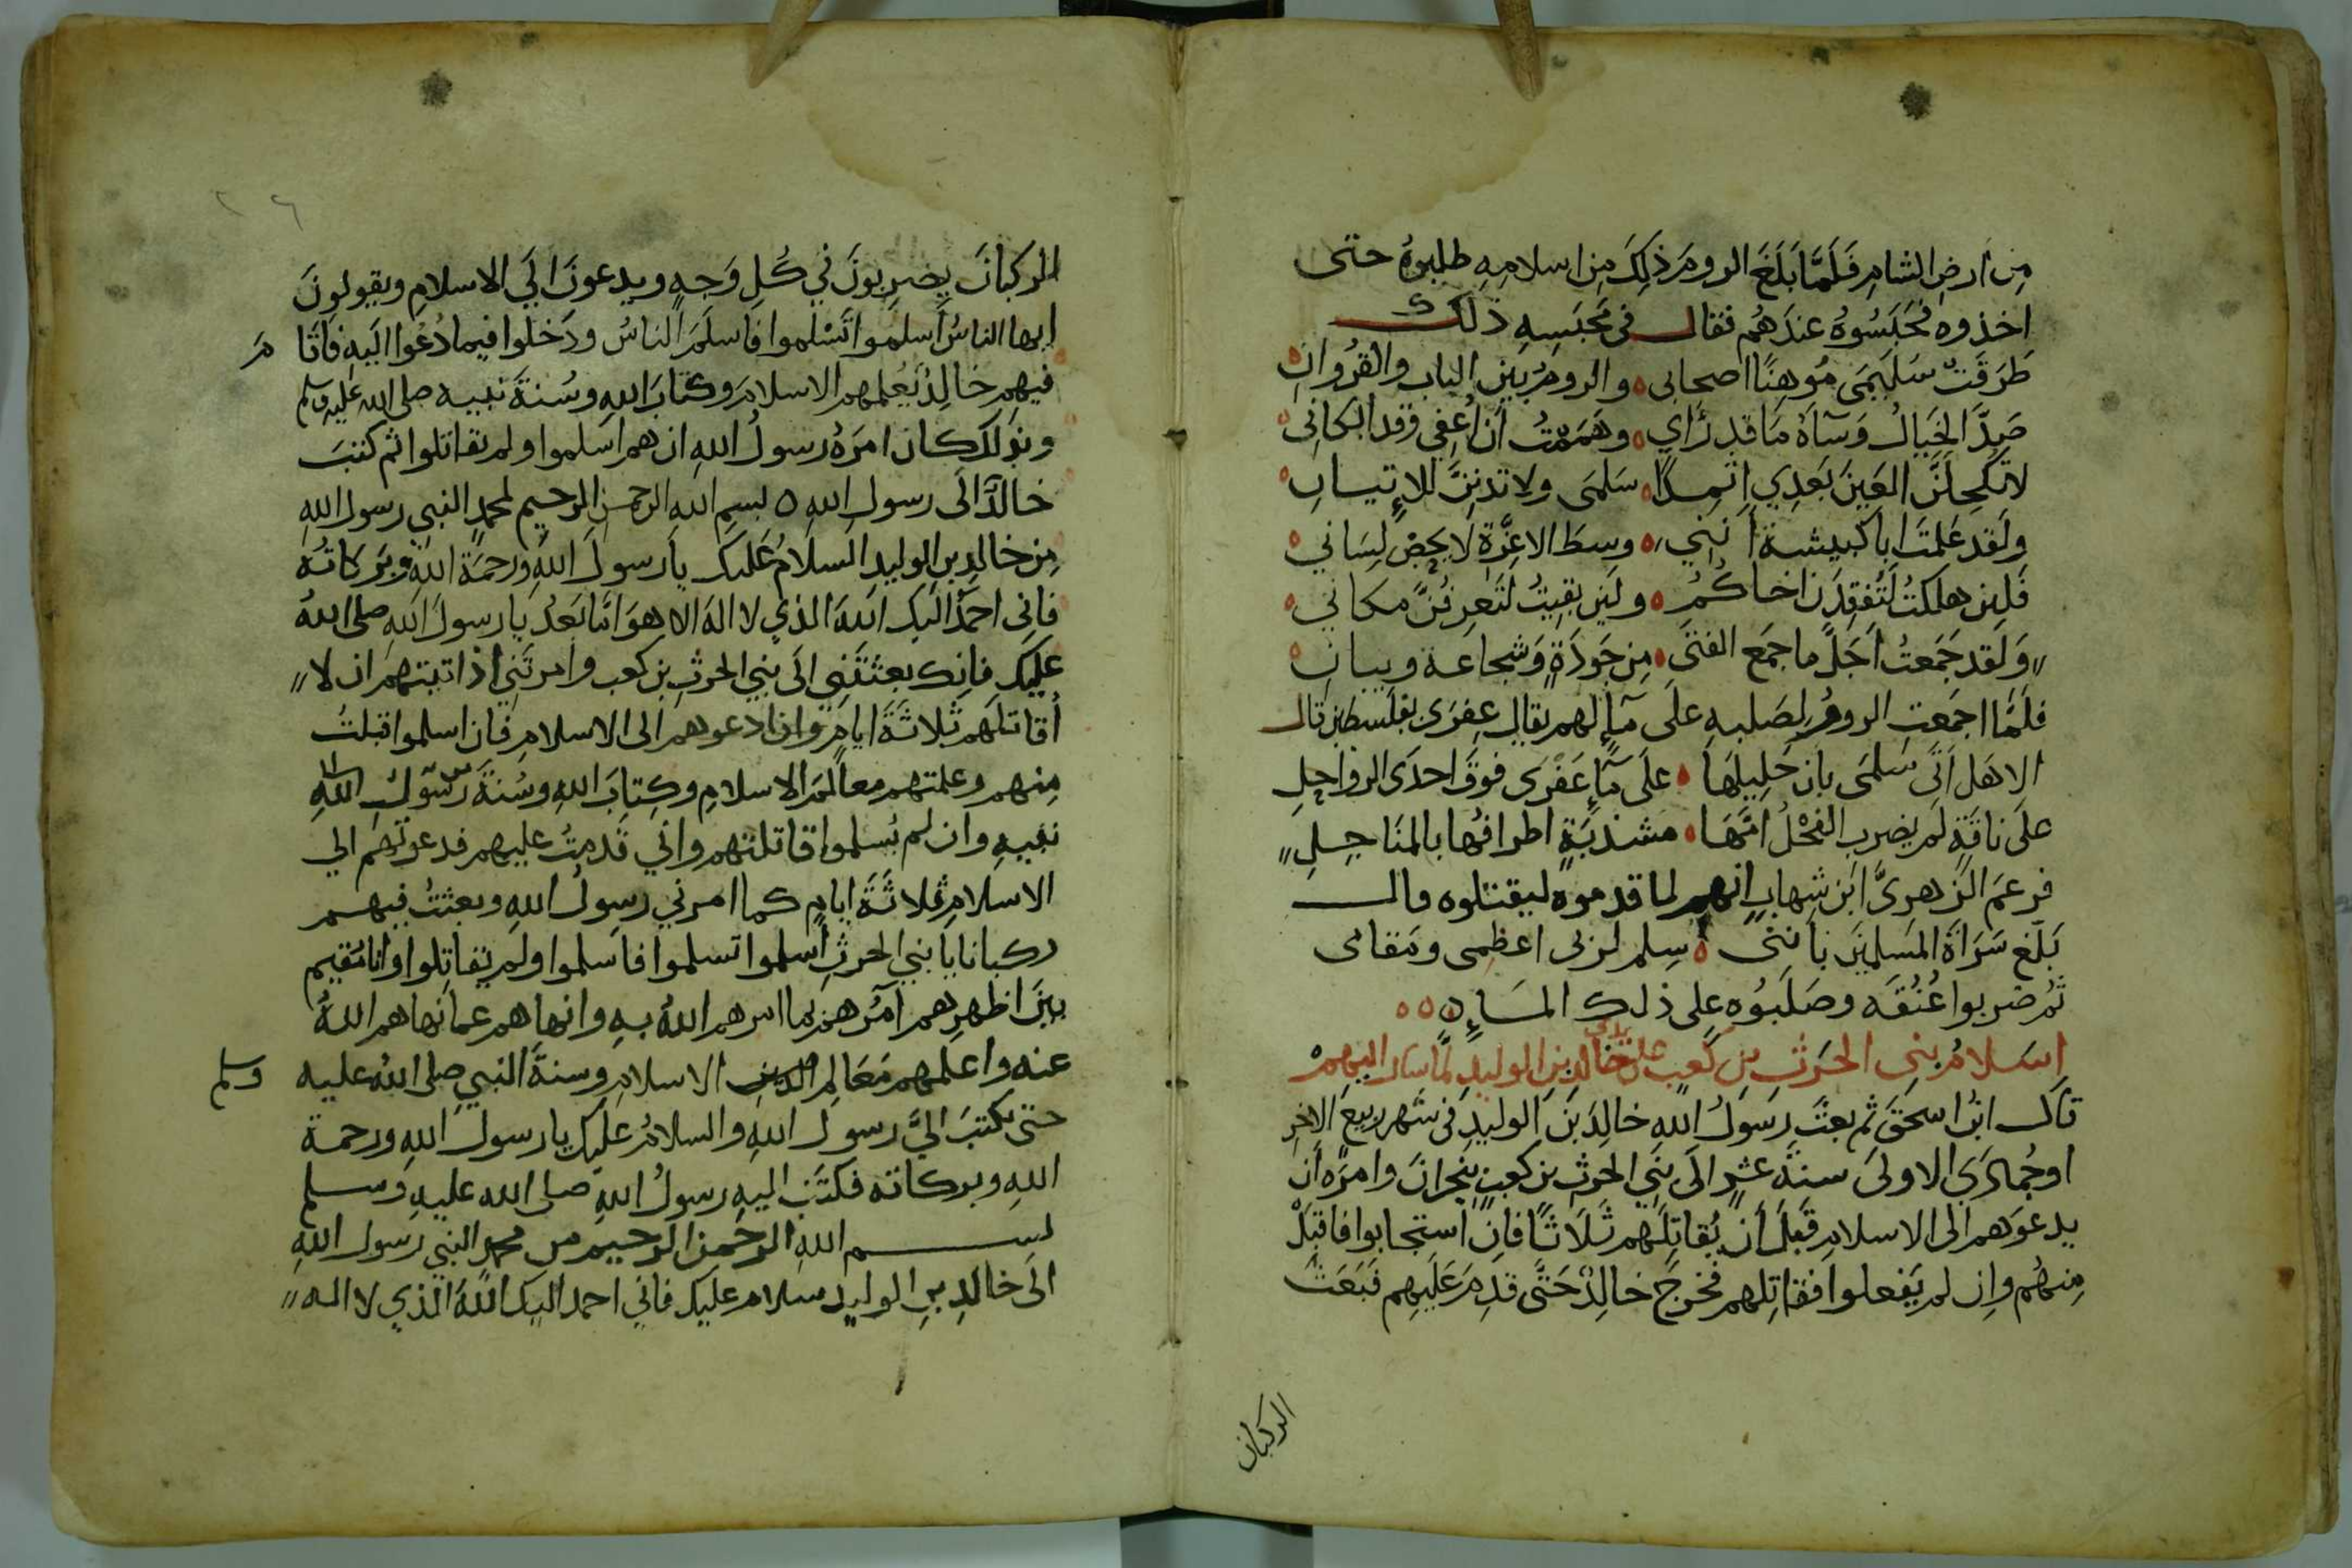 من ارض الشام فلما بلغ الروم ذلك من اسلامه طلبوه حتى
اخذوه فحبسوه عندهم فقال في محبسه ذلك
طرقت سليمى موهنا اصحابي والروم بين الباب والقروان
صد الخيال وساه ما قد راي وهممت ان اغفي وقد ابكاني
لا تكحلن العين بعدي اثمدا سلمى ولا تدنن للاتيان
ولقد علمت ابا كبيشة انني وسط الاعزة لا يحص لساني
فلئن هلكت لتفقدن اخاكم ولئن بقيت لتعرفن مكاني
ولقد جمعت اجل ما جمع الفتى من جودة وشجاعة وبيان
فلما اجمعت الروم لصلبه على ماء لهم يقال عفرى بفلسطين قال
الا هل اتى سلمى بان حليلها على ماء عفرى فوق احدى الرواحل
على ناقة لم يضرب الفحل امها مشذبة اطرافها بالمناجل
فزعم الزهري ابن شهاب انهم لما قدموه ليقتلوه قال
بلغ سراة المسلمين بانني سلم لربي اعظمي ومقامي
ثم ضربوا عنقه وصلبوه على ذلك الماء
اسلام بني الحرث بن كعب على يدي خالد بن الوليد لما سار اليهم
قال ابن اسحق ثم بعث رسول الله خالد بن الوليد في شهر ربيع الاخر
او جمادي الاولى سنة عشر الى بني الحرث بن كعب بنجران وامره ان
يدعوهم الى الاسلام قبل ان يقاتلهم ثلاثا فان استجابوا فاقبل
منهم وان لم يفعلوا فقاتلهم فخرج خالد حتى قدم عليهم فبعث
الركبان
الركبان يضربون في كل وجه ويدعون الى الاسلام ويقولون
ايها الناس اسلموا تسلموا فاسلم الناس ودخلوا فيما دعوا اليه فاقام
فيهم خالد يعلمهم الاسلام وكتاب الله وسنة نبيه صلى الله عليه وسلم
وبذلك كان امره رسول الله ان هم اسلموا ولم يقاتلوا ثم كتب
خالد الى رسول الله ه بسم الله الرحمن الرحيم لمحمد النبي رسول الله
من خالد بن الوليد السلام عليك يا رسول الله ورحمة الله وبركاته
فاني احمد اليك الله الذي لا اله الا هو اما بعد يا رسول الله صلى الله
عليك فانك بعثتني الى بني الحرث بن كعب وامرتني اذا اتيتهم ان لا
أقاتلهم ثلاثة ايام وان ادعوهم الى الاسلام فان اسلموا قبلت
منهم وعلمتهم معالم الاسلام وكتاب الله وسنة رسول الله
نبيه وان لم يسلموا قاتلتهم واني قدمت عليهم فدعوتهم الي
الاسلام ثلاثة ايام كما امرني رسول الله وبعثت فيهم
ركبانا يا بني الحرث اسلموا تسلموا فاسلموا ولم يقاتلوا وانا مقيم
بين اظهرهم آمرهم بما امرهم الله به وانهاهم عما نهاهم الله
عنه واعلمهم معالم الدين الاسلام وسنة النبي صلى الله عليه وسلم
حتى يكتب الي رسول الله والسلام عليك يا رسول الله ورحمة
الله وبركاته فكتب اليه رسول الله صلى الله عليه وسلم
بسم الله الرحمن الرحيم من محمد النبي رسول الله
الى خالد بن الوليد سلام عليك فاني احمد اليك الله الذي لا اله